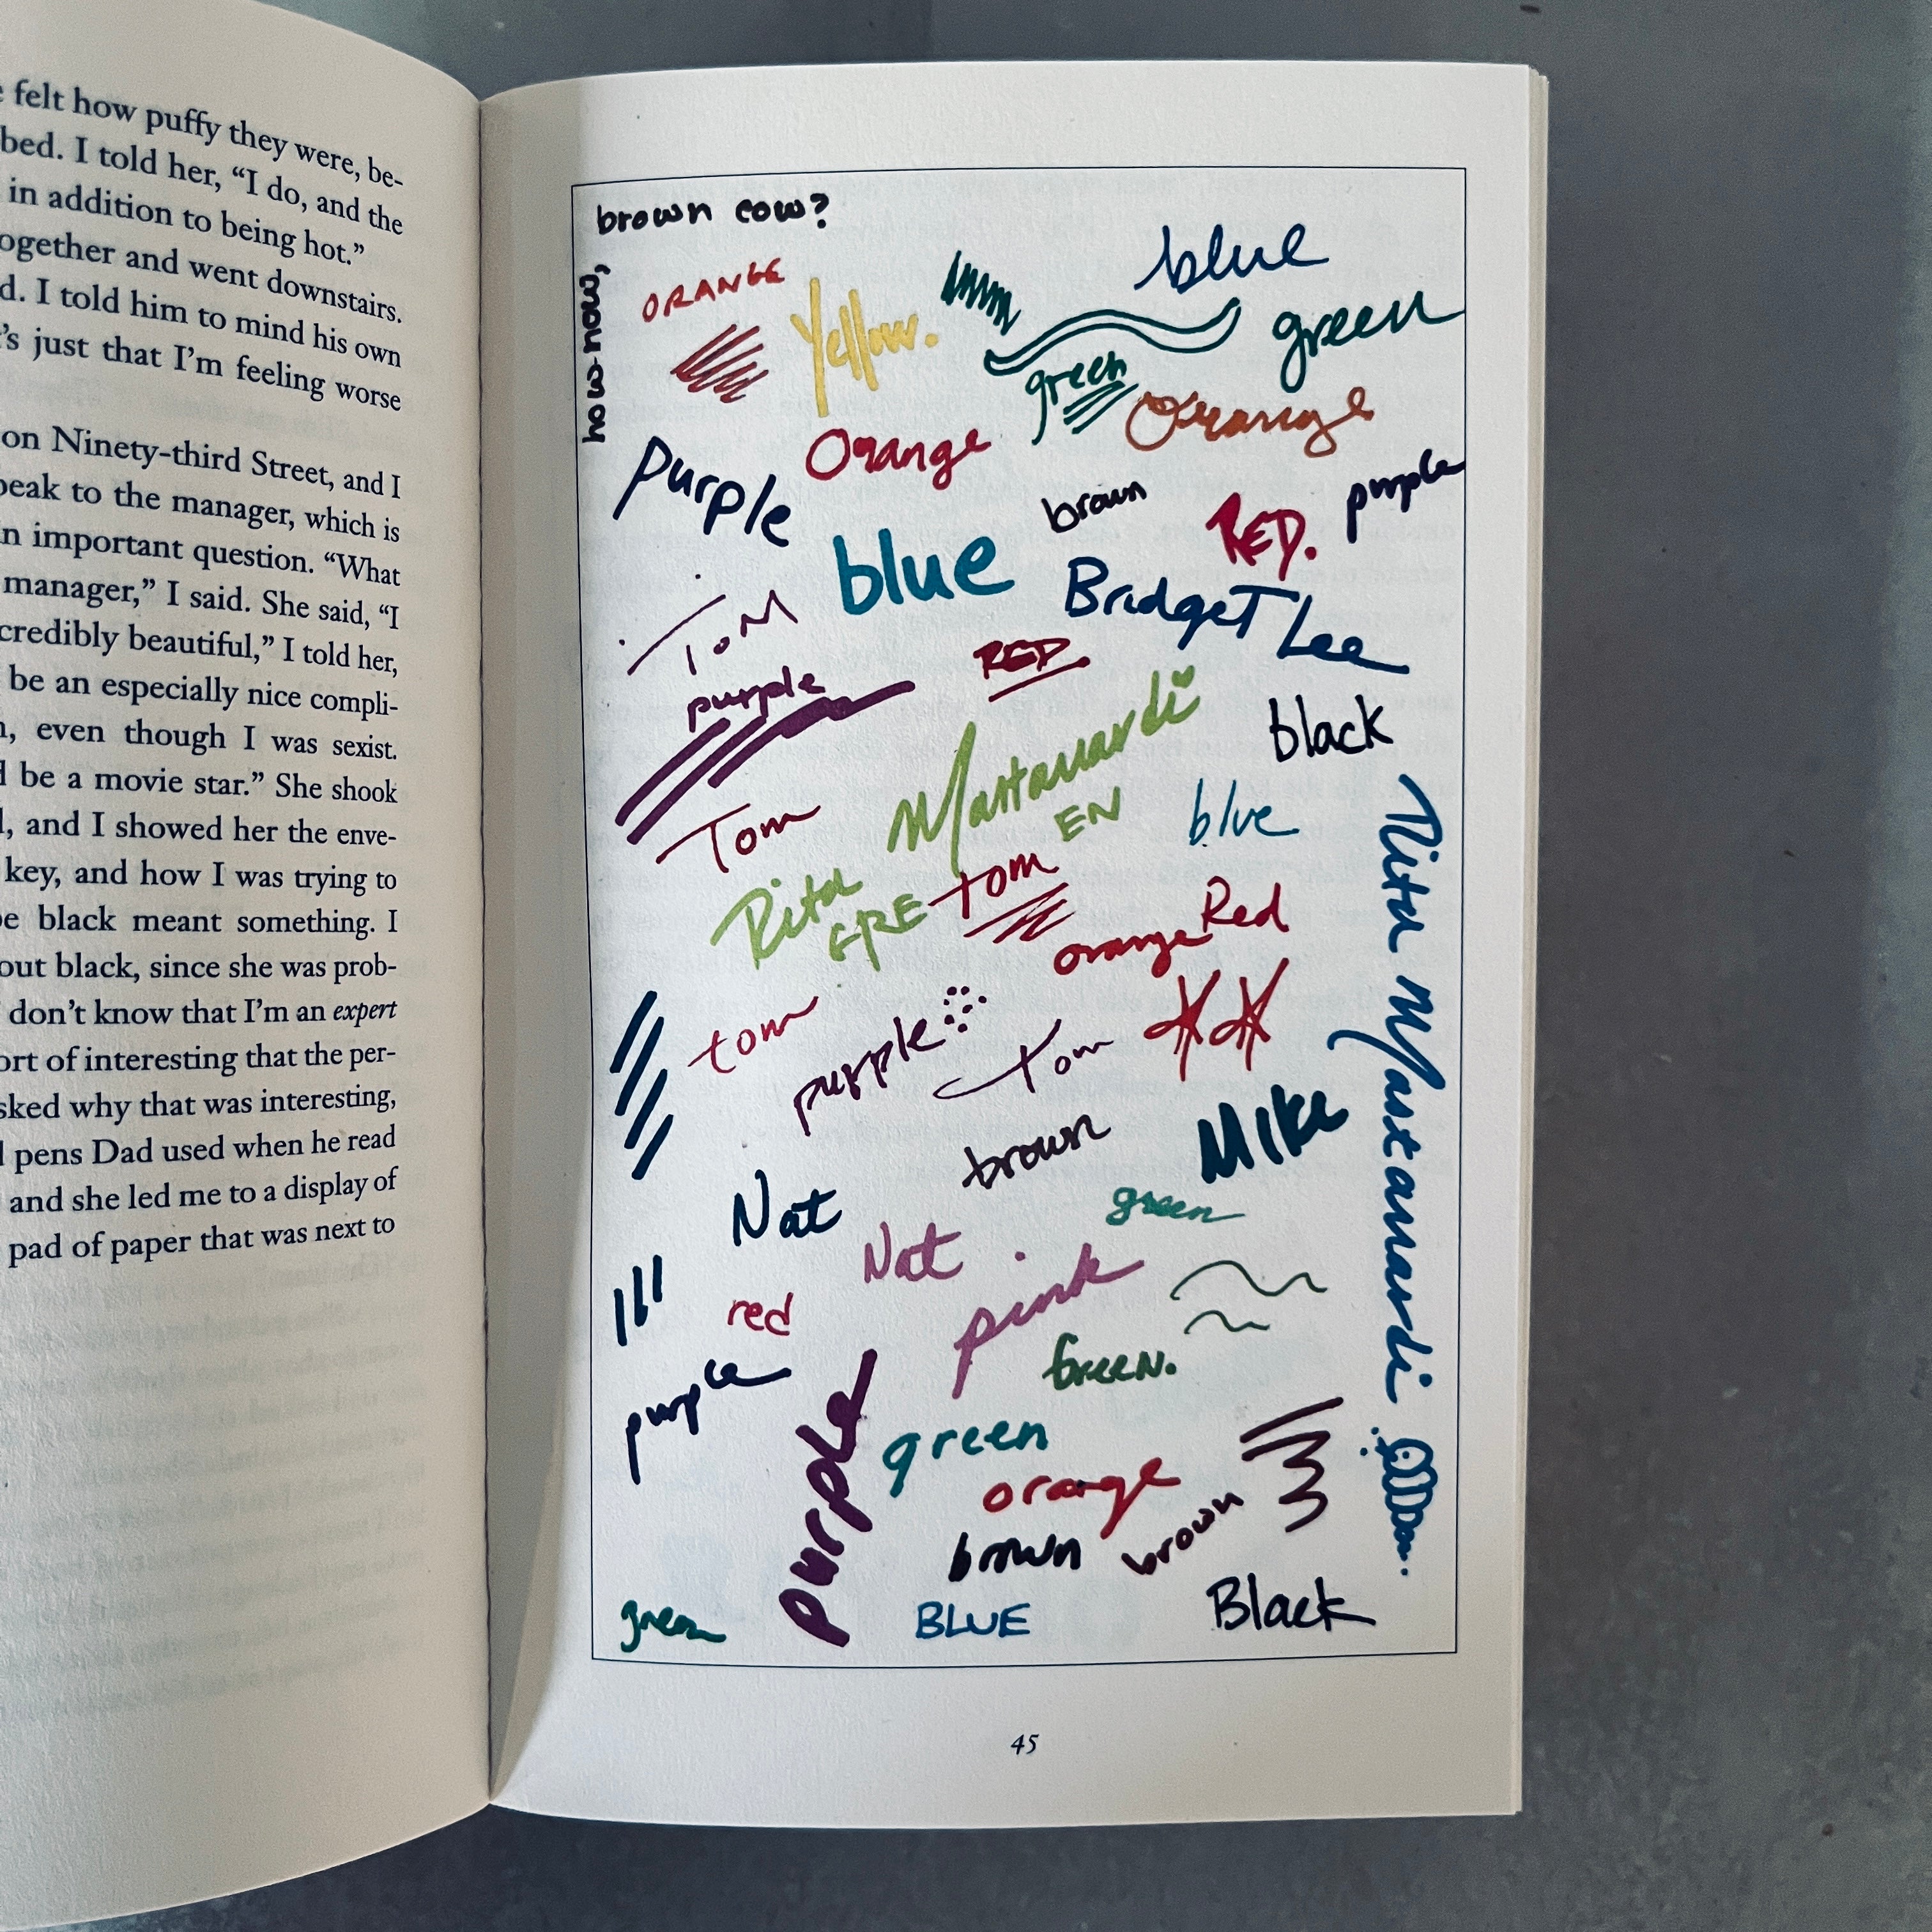 felt how puffy they were, be-
bed. I told her, “I do, and the
in addition to being hot.”
ogether and went downstairs.
d. I told him to mind his own
’s just that I’m feeling worse
on Ninety-third Street, and I
peak to the manager, which is
n important question. “What
manager,” I said. She said, “I
credibly beautiful,” I told her,
be an especially nice compli-
, even though I was sexist.
d be a movie star.” She shook
, and I showed her the enve-
key, and how I was trying to
e black meant something. I
out black, since she was prob-
don’t know that I’m an expert
ort of interesting that the per-
sked why that was interesting,
pens Dad used when he read
and she led me to a display of
pad of paper that was next to
how now,
brown cow?
ORANGE
Yellow.
blue
green
green
Orange
Orange
purple
brown
RED.
purple
blue
Bridget Lee
TOM
RED
purple
black
Rita Mastanardi
GREEN
Tom
blue
tom
Red
orange
Rita Mastanardi
tom
purple
tom
brown
Mike
Nat
green
Nat
pink
red
Green.
purple
purple
green
orange
brown
brown
green
BLUE
Black
45